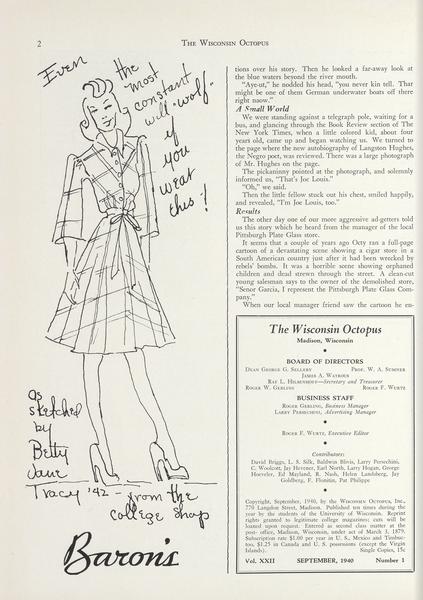 2
THE WISCONSIN OCTOPUS
Even
the
most
constant
will "wolf"
if
you
wear
this!
as
sketched
by
Betty
Jane
Tracy '42 - from the
College Shop
Baron's
tions over his story. Then he looked a far-away look at
the blue waters beyond the river mouth.
"Aye-ut," he nodded his head, "you never kin tell. That
might be one of them German underwater boats off there
right naow."
A Small World
We were standing against a telegraph pole, waiting for a
bus, and glancing through the Book Review section of The
New York Times, when a little colored kid, about four
years old, came up and began watching us. We turned to
the page where the new autobiography of Langston Hughes,
the Negro poet, was reviewed. There was a large photograph
of Mr. Hughes on the page.
The pickaninny pointed at the photograph, and solemnly
informed us, "That's Joe Louis."
"Oh," we said.
Then the little fellow stuck out his chest, smiled happily,
and revealed, "I'm Joe Louis, too."
Results
The other day one of our more aggressive ad-getters told
us this story which he heard from the manager of the local
Pittsburgh Plate Glass store.
It seems that a couple of years ago Octy ran a full-page
cartoon of a devastating scene showing a cigar store in a
South American country just after it had been wrecked by
rebels' bombs. It was a horrible scene showing orphaned
children and dead strewn through the street. A clean-cut
young salesman says to the owner of the demolished store,
"Senor Garcia, I represent the Pittsburgh Plate Glass Com-
pany."
When our local manager friend saw the cartoon he en-
The Wisconsin Octopus
Madison, Wisconsin
BOARD OF DIRECTORS
DEAN GEORGE C. SELLERY PROF. W. A. SUMNER
JAMES A. WATROUS
RAY L. HILSENHOFF—Secretary and Treasurer
ROGER W. GERLING ROGER F. WURTZ
BUSINESS STAFF
ROGER GERLING, Business Manager
LARRY PERSECHINI, Advertising Manager
ROGER F. WURTZ, Executive Editor
Contributors:
David Briggs, L. S. Silk, Baldwin Blivis, Larry Persechini,
C. Woolcott, Jay Hevener, Earl North, Larry Hogan, George
Hoeveler, Ed Mayland, R. Nash, Helen Landsberg, Jay
Goldberg, F. Flonitin, Pat Philippe
Copyright, September, 1940, by the WISCONSIN OCTOPUS, INC.,
770 Langdon Street, Madison. Published ten times during the
year by the students of the University of Wisconsin. Reprint
rights granted to legitimate college magazines; cuts will be
loaned upon request. Entered as second class matter at the
post-office, Madison, Wisconsin, under act of March 3, 1879.
Subscription rate $1.00 per year in U. S., Mexico and Timbuc-
too, $1.25 in Canada and U. S. possessions (except the Virgin
Islands). Single Copies, 15c
Vol. XXII SEPTEMBER, 1940 Number 1